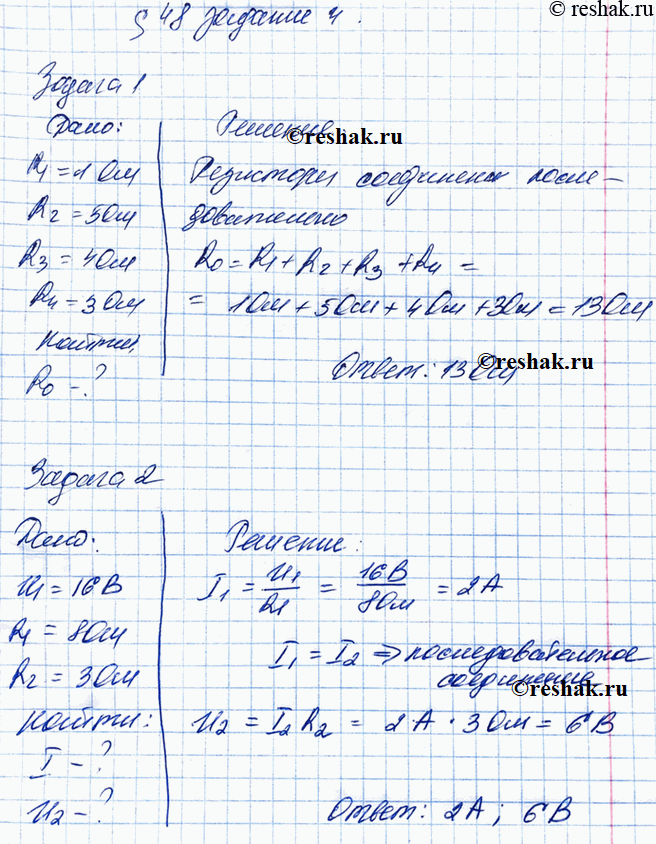 ©reshak.ru
§ 48 задание 4.
Задача 1
Дано:
R1 = 1 Ом
R2 = 5 Ом
R3 = 4 Ом
R4 = 3 Ом
Найти:
R0 - ?
Решение
©reshak.ru
Резисторы соединены после-
довательно
R0 = R1 + R2 + R3 + R4 =
= 1 Ом + 5 Ом + 4 Ом + 3 Ом = 13 Ом
©reshak.ru
Ответ: 13 Ом
Задача 2
Дано:
U1 = 16 В
R1 = 8 Ом
R2 = 3 Ом
Найти:
I - ?
U2 - ?
Решение:
I1 = U1/R1 = 16 В/8 Ом = 2 А
I1 = I2 ⇒ последовательное
соединение
©reshak.ru
U2 = I2 R2 = 2 А · 3 Ом = 6 В
Ответ: 2 А; 6 В